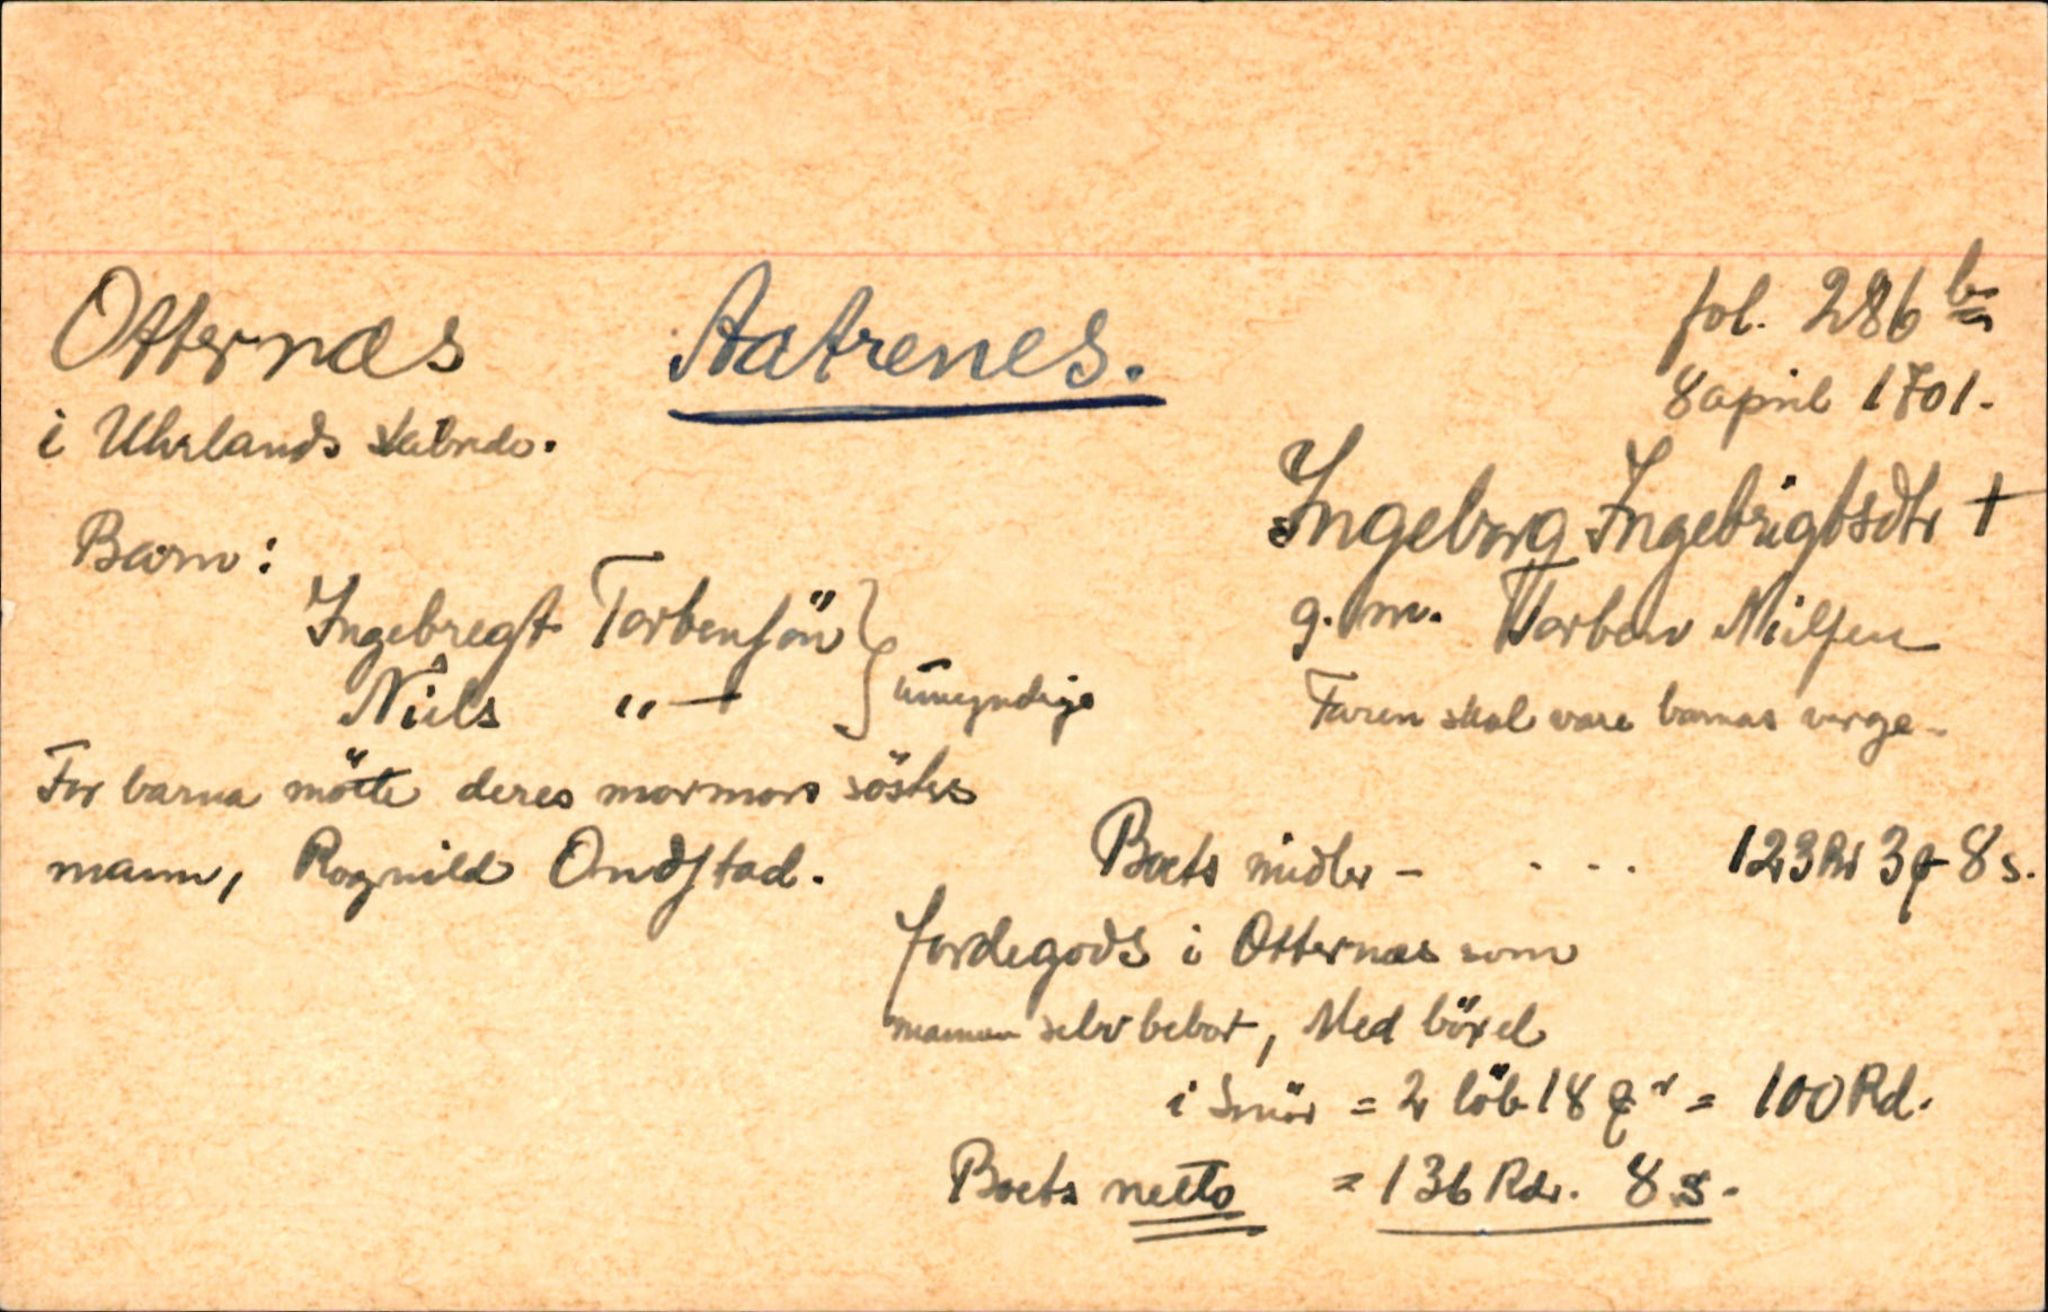 Otternæs Aatrenes. fol. 286 b
8 april 1701.
i Uhrlands skibrede.
Ingeborg Ingebrigtsdtr †
g. m. Torben Nielsen
Faren skal være barnas verge.
Barn:
Ingebregt Torbensön } umyndige
Niels " —
For barna mötte deres mormors sösters
mann, Rognild Ondstad.
Boets midler - . . . 123 Rd 3 q 8 s.
Jordegods i Otternæs som
mannen selv bebor, Med böxel
i Smör = 2 löb 18 = 100 Rd.
Boets netto = 136 Rdr. 8 s.